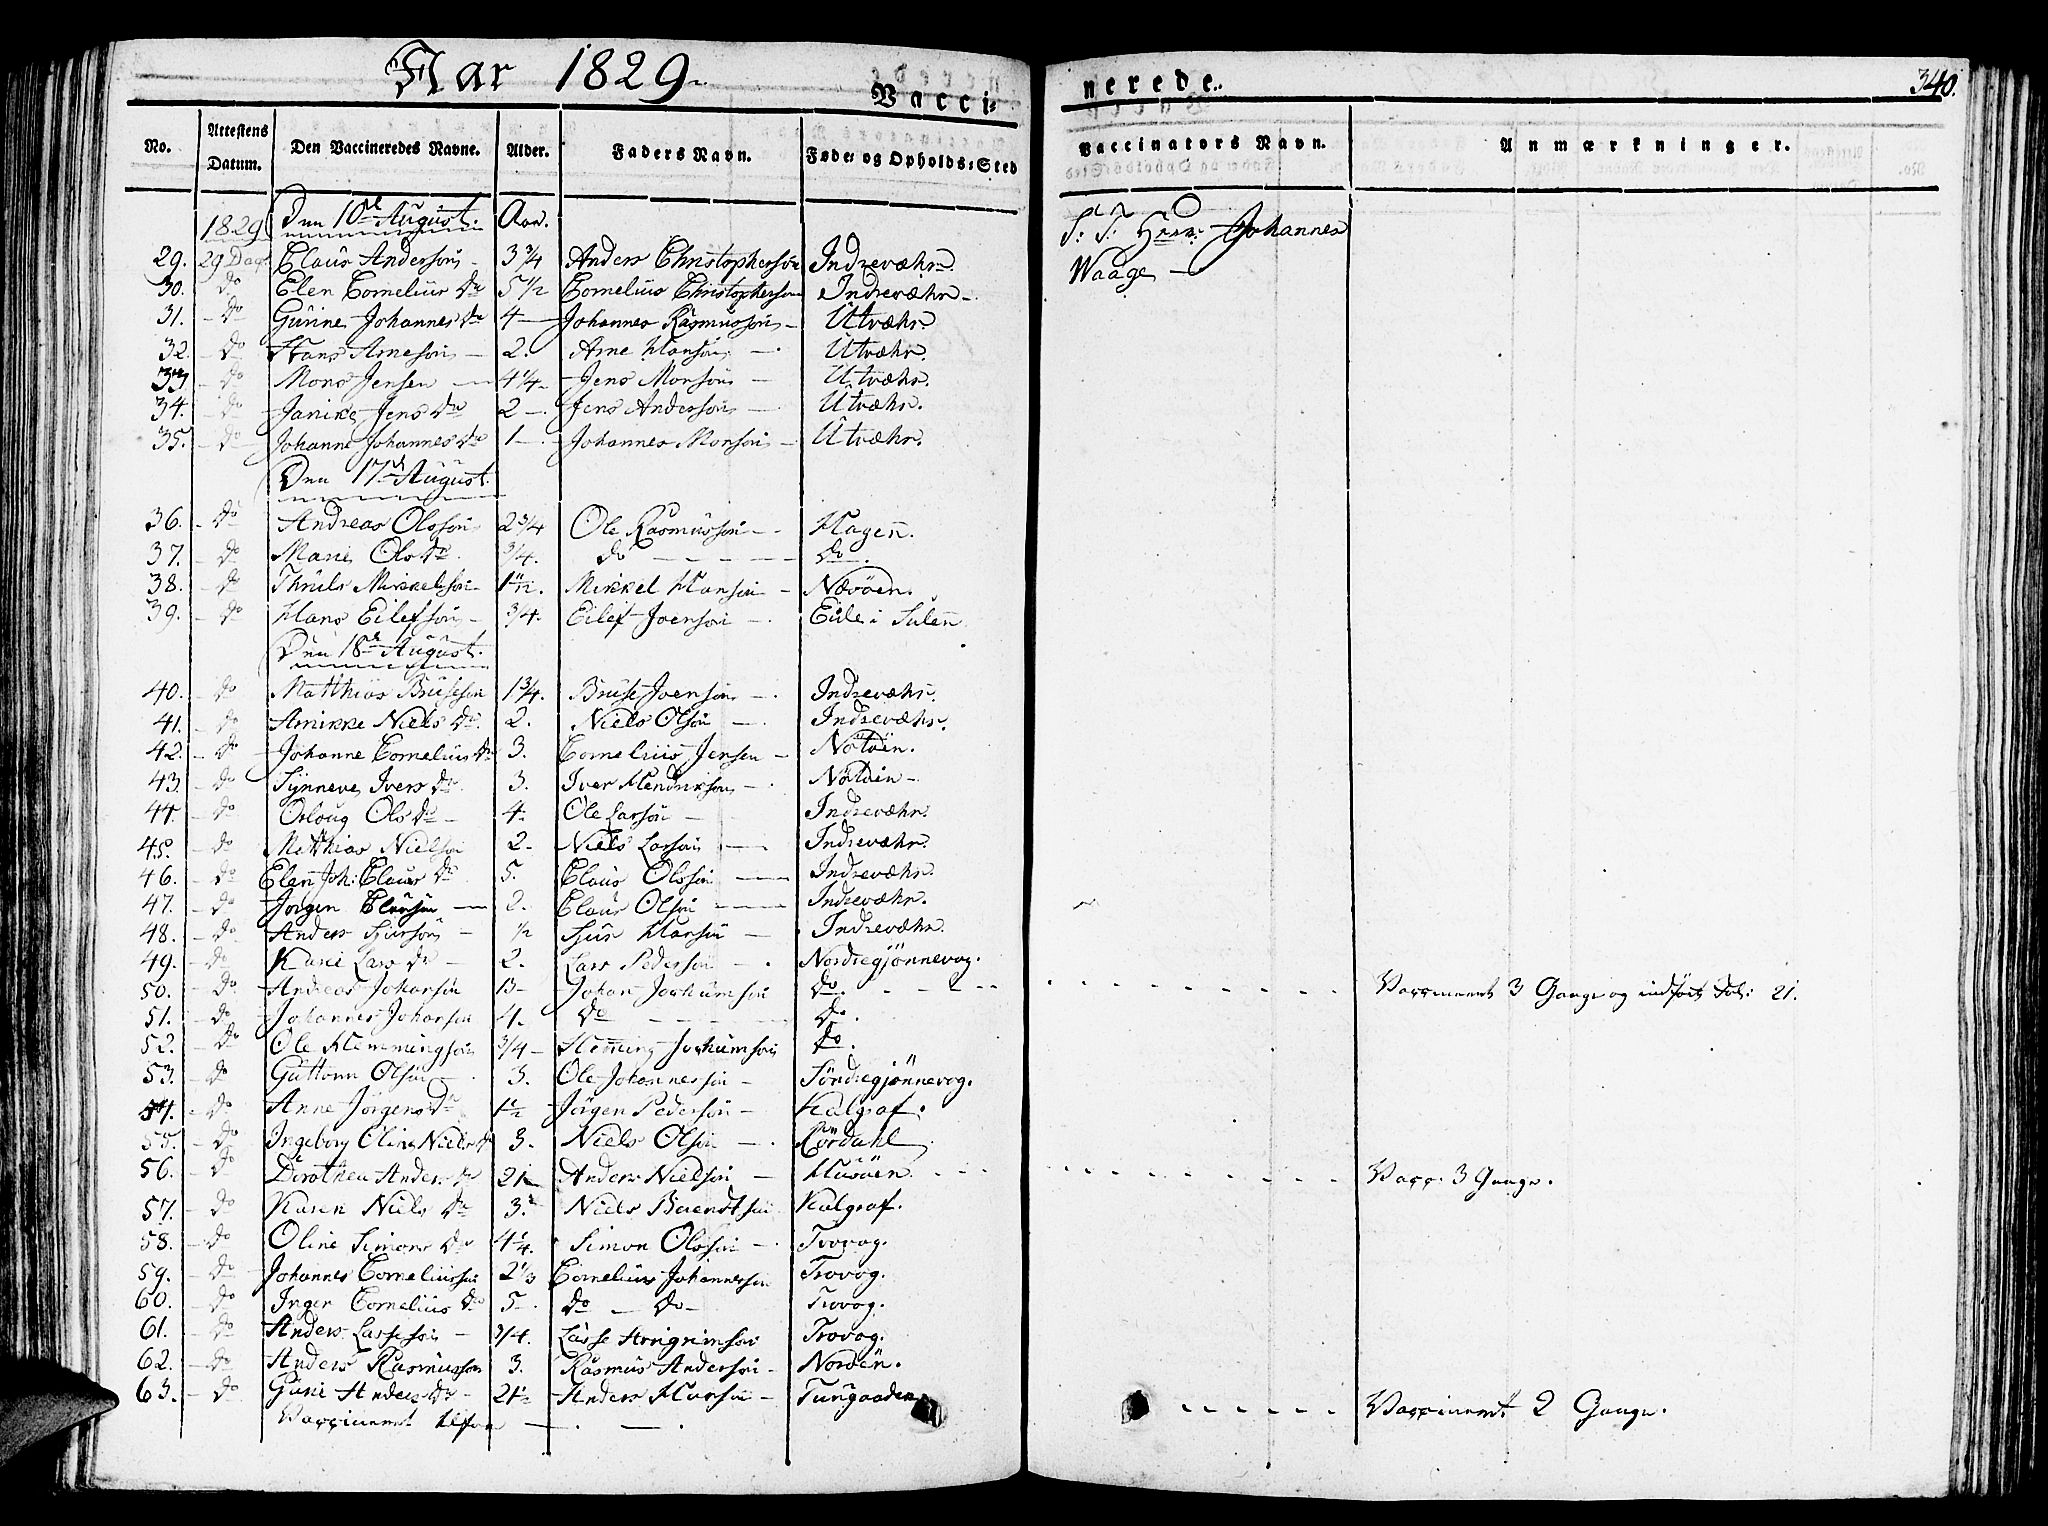 Aar 1829
Vacci-
nerede.
340.
No.
Attestens Datum.
Den Vaccineredes Navne.
Alder.
Faders Navn.
Føde- og Opholds-Sted
Vaccinators Navn.
Anmærkninger.
1829 Den 10de August. Aar. S: T: Herr Johannes
29. 29 Dag Claus Anderson 3 3/4 Anders Christopherson Indrevæhr. Waage
30. do Elen Cornelius Dr 5 1/2 Cornelius Christopherson Indrevæhr
31. do Gurine Johannes Dr 4 Johannes Rasmusson Utvæhr.
32. do Hans Arneson 2. Arne Hanson Utvæhr.
33. do Mons Jensen 4 1/4 Jens Monson Utvæhr.
34. do Janike Jens Dr 2 Jens Anderson Utvæhr.
35. do Johanne Johannes Dr 1 Johannes Monson Utvæhr.
Den 17de August.
36. do Andreas Olsson 2 3/4 Ole Rasmusson Hagen.
37. do Marie Ols Dr 3/4. do do.
38. do Thruls Mikkelson 1 Mikkel Hanson Nævöen.
39. do Hans Eilefson 3/4. Eilef Joenson Eide i Sulen
Den 18de August.
40. do Matthias Bruseson 1 3/4. Bruse Joenson Indrevæhr.
41. do Annikke Niels Dr. 2. Niels Olson Indrevæhr.
42. do Johanne Cornelius Dr 3. Cornelius Jensen
43. do Synneve Ivers Dr 3. Iver Hendrikson
44. do Orloug Ols Dr 4. Ole Larson Indrevæhr.
45. do Matthias Nielson 2. Niels Larson Indrevæhr.
46. do Elen Joh: Claus Dr 5. Claus Olsson Indrevæhr.
47. do Jörgen Clauson 2. Claus Olson Indrevæhr.
48. do Anders Sjurson 1/2 Sjur Hanson Indrevæhr.
49. do Kari Lars Dr 2. Lars Pederson Nordregjönnevog.
50. do Andreas Johanson 13 Johan Jochumson do. Vaccineert 3 Gange og indfört Fol: 21.
51. do Johannes Johanson 4. do do.
52. do Ole Hemmingson 3/4 Heming Jochumson do.
53. do Guttorm Olson 3. Ole Johannesson Söndregjönnevog.
54. do Anne Jörgens Dr 1 1/2 Jörgen Pederson Kalgraf.
55. do Ingeborg Oline Niels Dr 3. Niels Olson
56. do Dorothea Anders Dr 21 Anders Nielson Husöen. Vacc. 3 Gange.
57. do Karen Niels Dr 3. Niels Berendtson Kalgraf.
58. do Oline Simons Dr 4 1/4. Simon Olsson Trovog.
59. do Johannes Corneliusson 2 1/3 Cornelius Johannesson Trovog.
60. do Inger Cornelius Dr 5 do do Trovog.
61. do Anders Lasseson 3/4. Lasse Arngrimson Trovog.
62. do Anders Rasmusson 3. Rasmus Anderson Nordën.
63. do Guri Anders Dr 21 Anders Hanson Tungodden
Vaccineert Vaccineert 2 Gange.